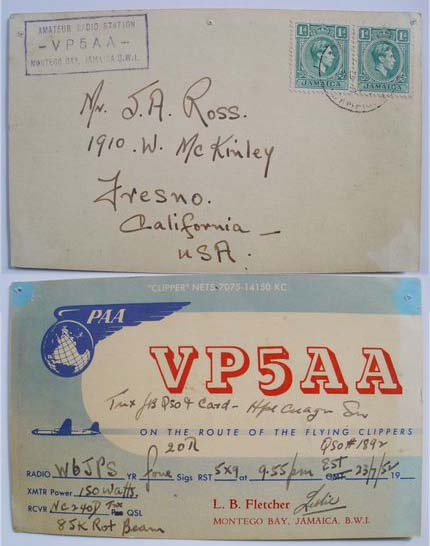 AMATEUR RADIO STATION
- VP5AA -
MONTEGO BAY, JAMAICA B.W.I.
1D 1D
JAMAICA JAMAICA
Mr. J.A. Ross.
1910. W. McKinley
Fresno.
California -
USA.
"CLIPPER" NETS 7075-14150 KC
PAA
VP5AA
Tnx QSO & Card - Hpe Cuagn
ON THE ROUTE OF THE FLYING CLIPPERS
QSO#1892
RADIO W6JPS YR fone Sigs RST 5x9 at 9.55 pm EST GMT 23/7/52 19
XMTR Power 150 Watts.
RCVR NC240D Tnx QSL
85K Rot Beam
L. B. Fletcher Leslie
MONTEGO BAY, JAMAICA. B.W.I.